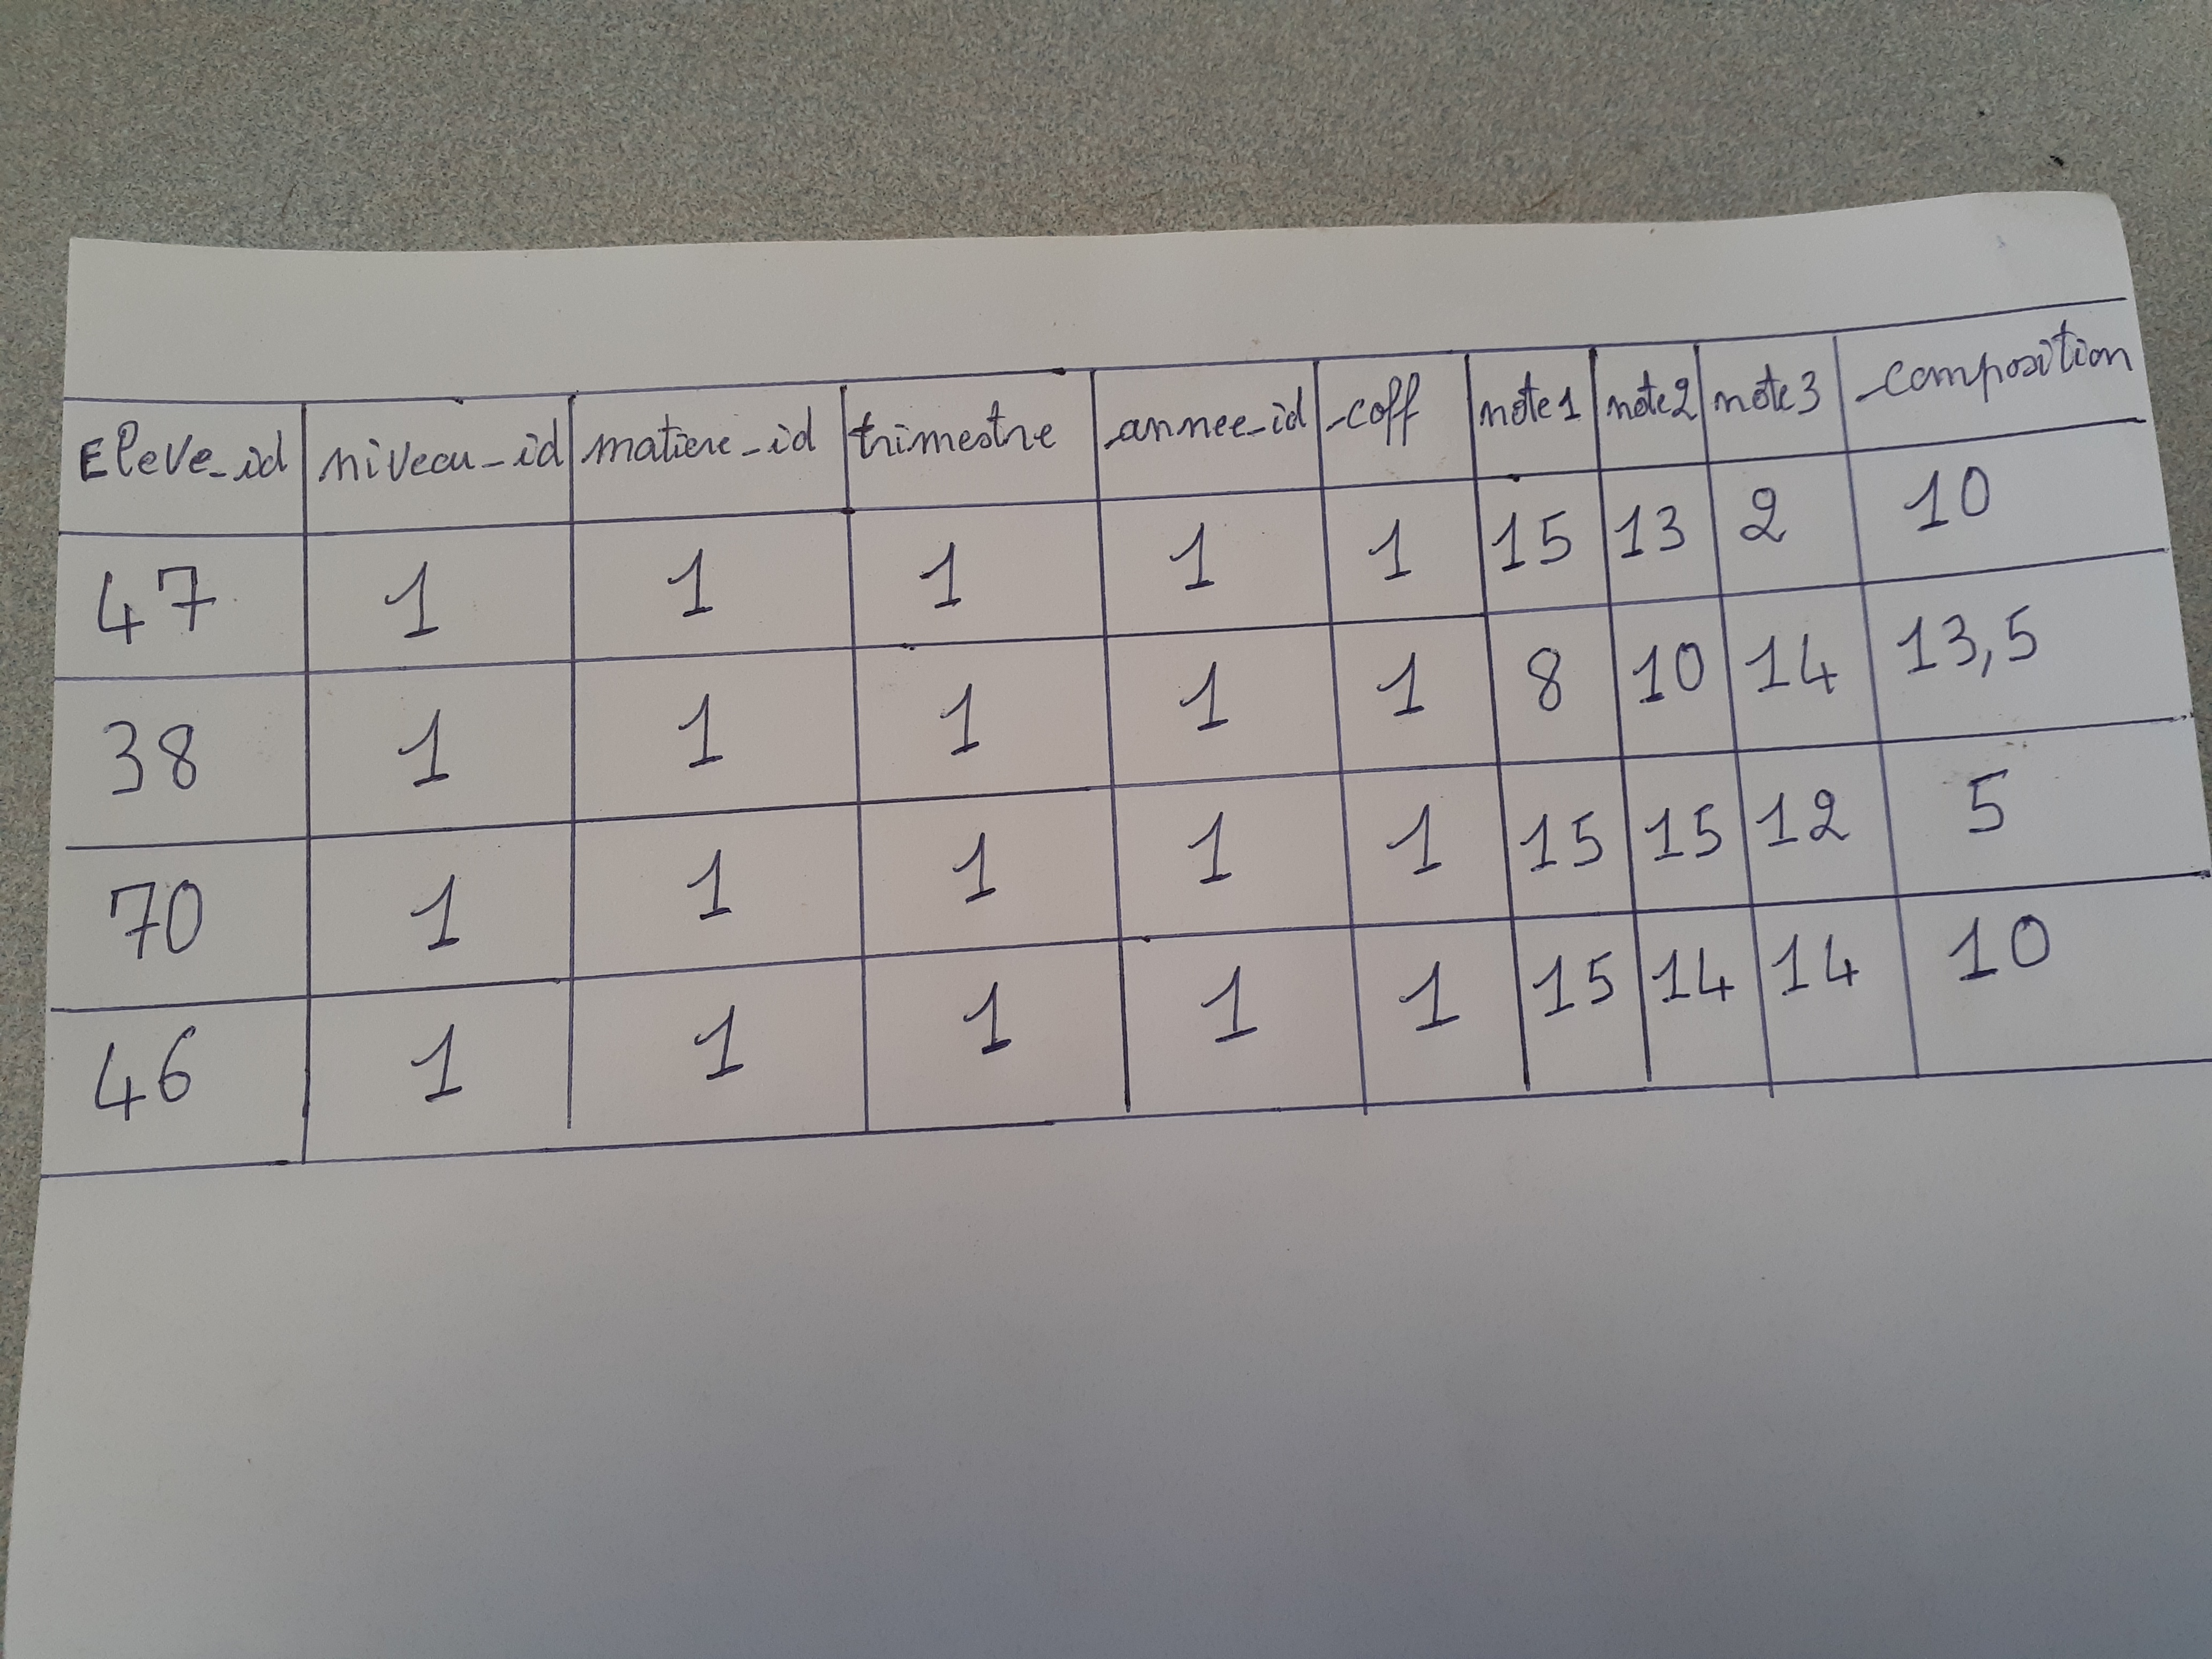 Eleve_id niveau_id matiere_id trimestre annee_id coff note1 note2 note3 composition
47 1 1 1 1 1 15 13 2 10
38 1 1 1 1 1 8 10 14 13,5
70 1 1 1 1 1 15 15 12 5
46 1 1 1 1 1 15 14 14 10